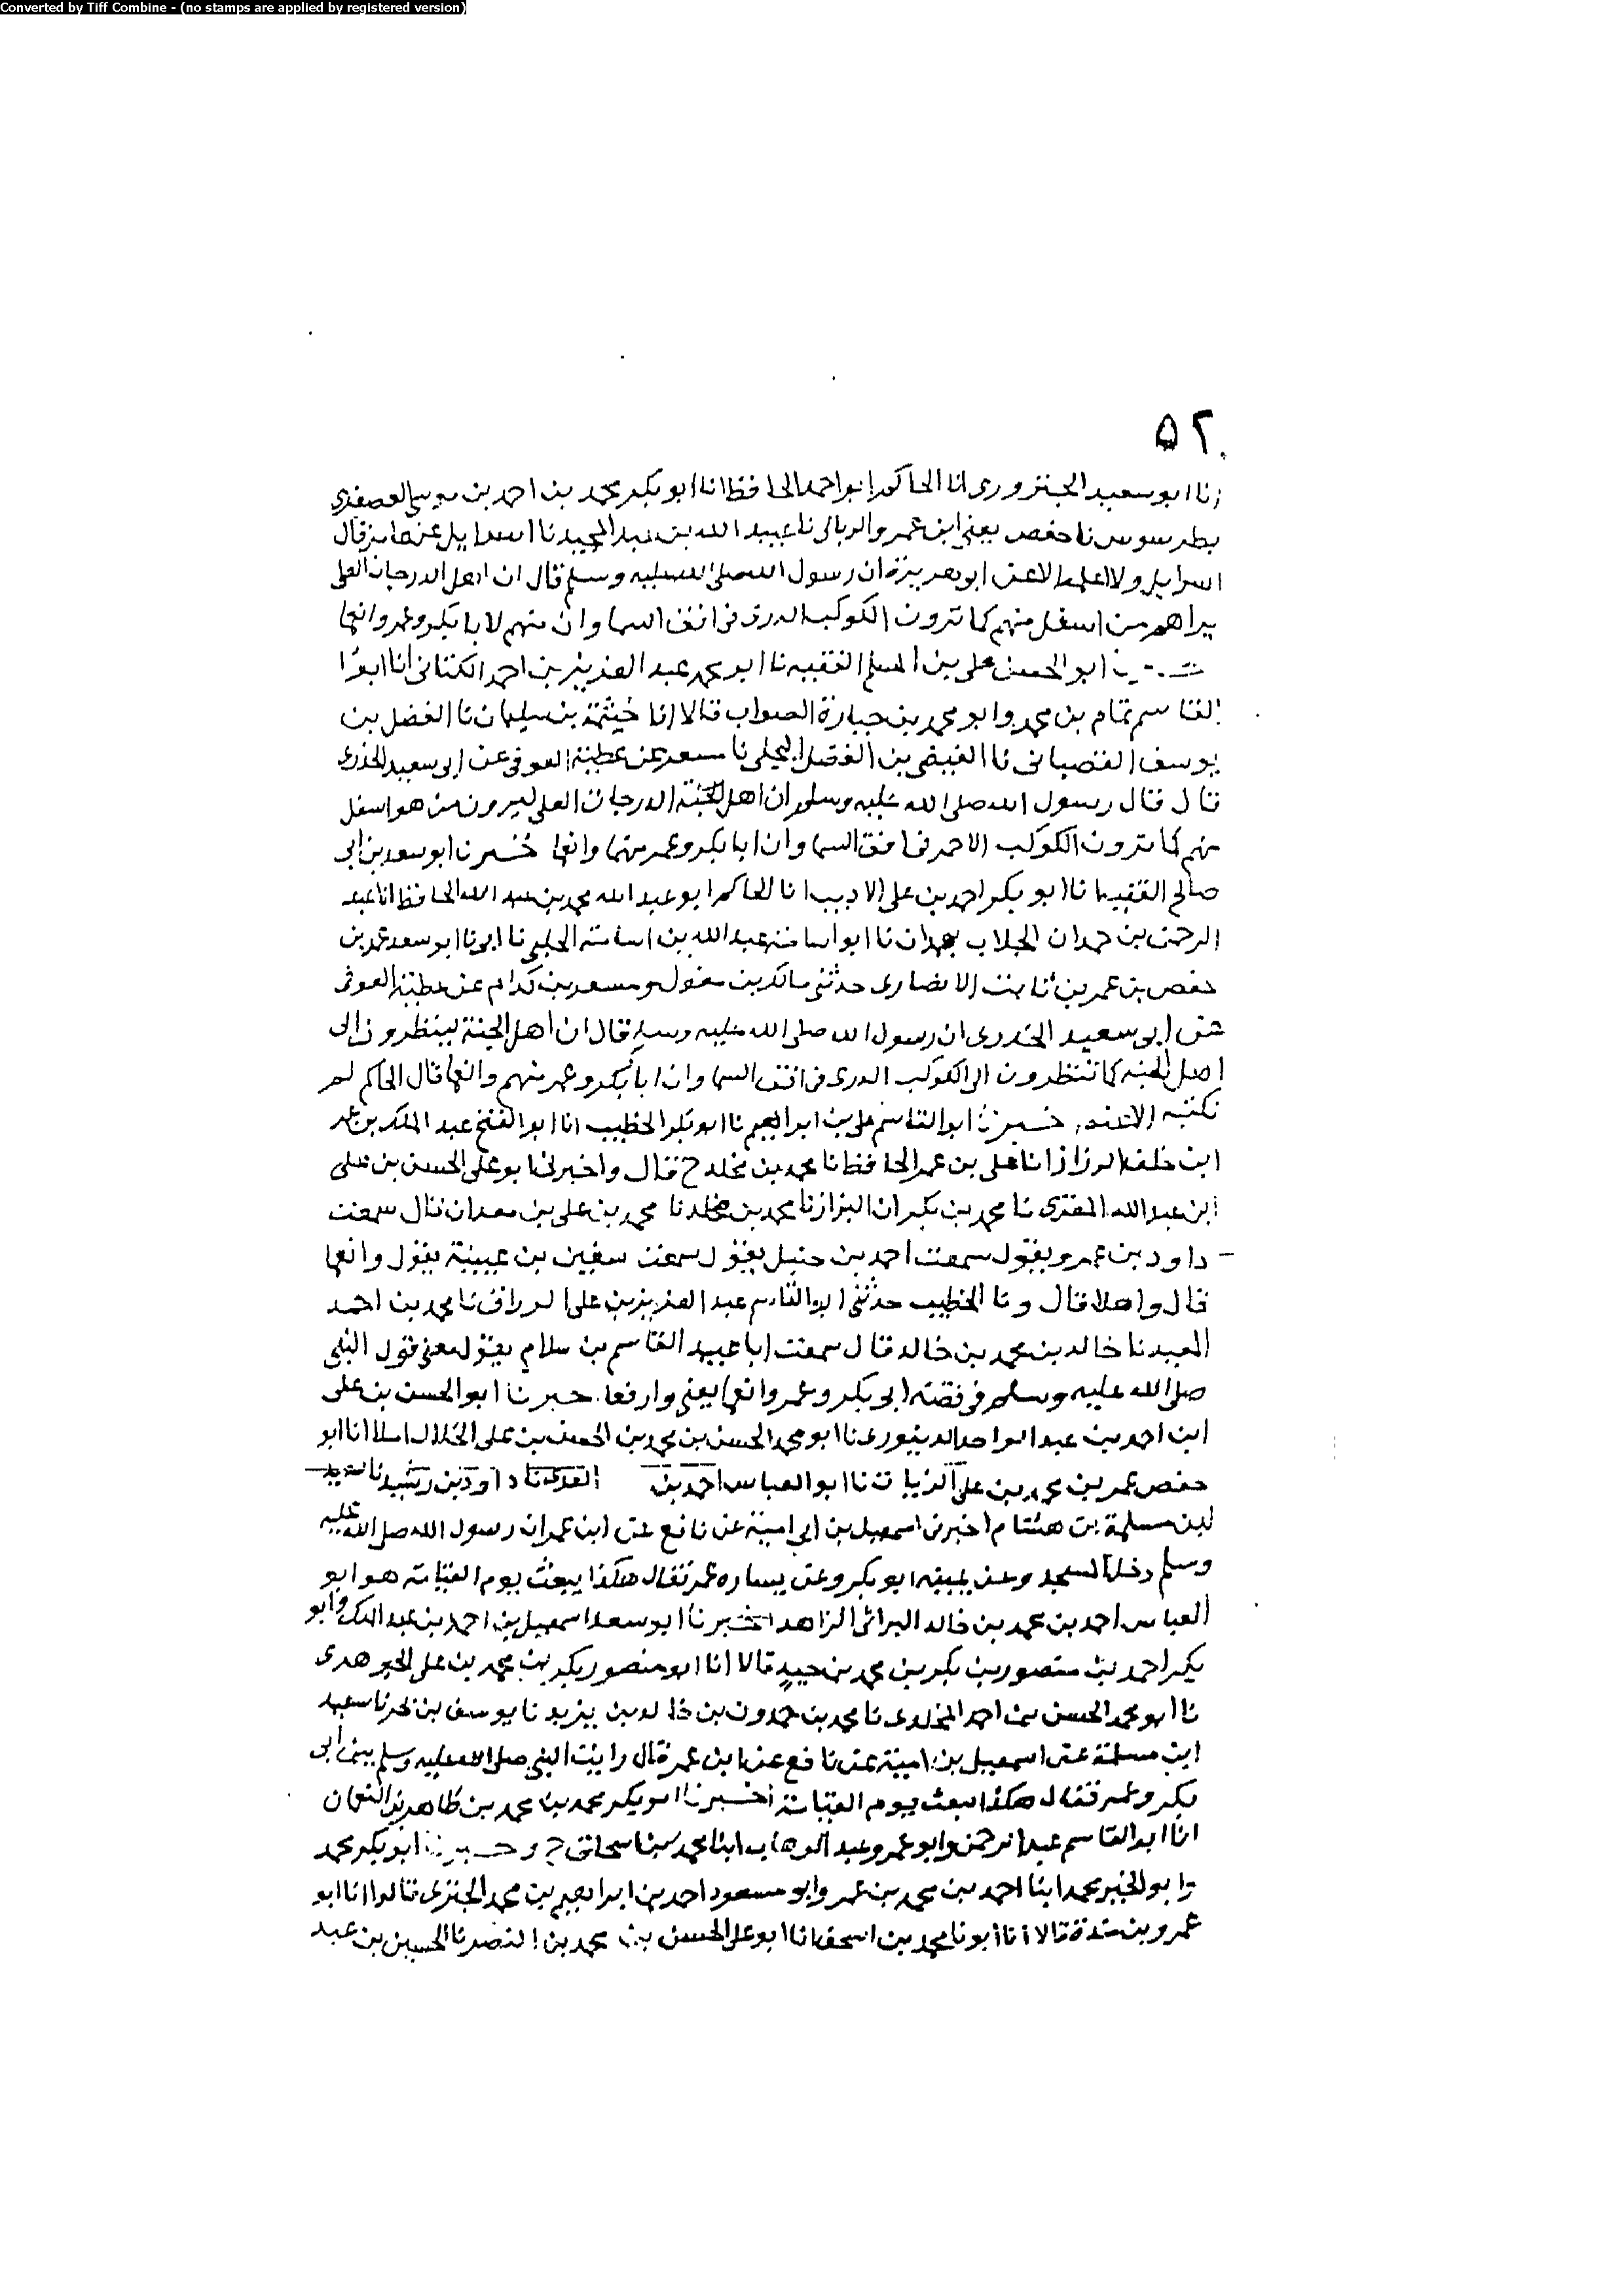 Converted by Tiff Combine - (no stamps are applied by registered version)
٥٢
انا ابو سعيد الجنزرودى انا الحاكم ابو احمد الحافظ انا ابو بكر محمد بن احمد بن موسى العصفرى
بطرسوس نا حفص يعنى ابن عمرو الربالى نا عبيد الله بن عبد المجيد نا اسرايل عن قال
اسرايل ولا اعلمه الا عن ابو هريرة ان رسول الله صلى الله عليه وسلم قال ان اهل الدرجات العلى
يراهم من اسفل منهم كما ترون الكوكب الدرى فى افق السما وان منهم لابا بكر وعمر وانعما
ابو الحسن على بن المسلم الفقيه نا ابو محمد عبد العزيز بن احمد الكتانى انا ابو
القاسم تمام بن محمد وابو محمد بن جبارة الصواب قالا انا خيثمة بن سليمان نا الفضل بن
يوسف القصبانى نا الفيض بن الفضل البجلى نا مسعر عن عطية العوفى عن ابى سعيد الخدرى
قال قال رسول الله صلى الله عليه وسلم ان اهل الجنة الدرجات العلى ليرون من هو اسفل
منهم كما ترون الكوكب الاحمر فى افق السما وان ابا بكر وعمر منهما وانعما خبرنا ابو سعد بن ابى
صالح الفقيه انا ابو بكر احمد بن على الاديب انا الحاكم ابو عبد الله محمد بن عبد الله الحافظ انا عبد
الرحمن بن حمدان الجلاب بهمدان نا ابو اسامة عبد الله بن اسامة الحلبى نا ابى نا ابو سعد عمر بن
حفص بن عمر بن ثابت الانصارى حدثنى مالك بن مغول ومسعر بن كدام عن عطية العوفى
عن ابى سعيد الخدرى ان رسول الله صلى الله عليه وسلم قال ان اهل الجنة لينظرون الى
اهل الجنة كما تنظرون الى الكوكب الدرى فى افق السما وان ابا بكر وعمر منهم وانعما قال الحاكم لم
نكتبه الا خبرنا ابو القاسم على بن ابراهيم نا ابو بكر الخطيب انا ابو الفتح عبد الملك بن عمر
ابن خلف الرزاز انا على بن عمر الحافظ نا محمد بن مخلد ح قال واخبرنى ابو على الحسن بن على
ابن عبد الله المقرى نا محمد بن بكران البزاز نا محمد بن مخلد نا محمد بن على بن معدان قال سمعت
داود بن عمرو يقول سمعت احمد بن حنبل يقول سمعت سفين بن عيينة يقول وانعما
قال واهلا قال ونا الخطيب حدثنى ابو القاسم عبد العزيز بن على الوراق نا محمد بن احمد
المعيد نا خالد بن محمد بن خالد قال سمعت ابا عبيد القاسم بن سلام يقول معنى قول النبى
صلى الله عليه وسلم فى قصة ابى بكر وعمر وانعما يعنى وارفعا خبرنا ابو الحسن بن على
ابن احمد بن عبد الواحد الدينورى نا ابو محمد الحسن بن محمد بن الحسن بن على الخلال املا انا ابو
حفص عمر بن محمد بن على الزيات نا ابو العباس احمد بن نا داود بن رشيد نا سعيد
ابن مسلمة بن هشام اخبرنى اسمعيل بن ابى امية عن نافع عن ابن عمر ان رسول الله صلى الله عليه
وسلم دخل المسجد وعن يمينه ابو بكر وعن يساره عمر فقال هكذا يبعث يوم القيامة هو ابو
العباس احمد بن محمد بن خالد البراثى الزاهد اخبرنا ابو سعد اسمعيل بن احمد بن عبد الملك وابو
بكر احمد بن منصور بن بكر بن محمد بن حيد قالا انا ابو منصور بكر بن محمد بن على
نا ابو محمد الحسن بن احمد المخلدى نا محمد بن حمدون بن خالد بن يزيد نا يوسف بن بحر نا سعيد
ابن مسلمة عن اسمعيل بن امية عن نافع عن ابن عمر قال رايت النبى صلى الله عليه وسلم بين ابى
بكر وعمر فقال هكذا نبعث يوم القيامة اخبرنا ابو بكر محمد بن محمد بن طاهر بن النعمان
انا ابو القاسم عبد الرحمن وابو عمرو عبد الوهاب ابنا محمد بن اسحاق ح وخبرنا ابو بكر محمد
وابو الخير محمد ابنا احمد بن محمد بن عمر وابو مسعود احمد بن ابراهيم بن محمد الجنزى قالوا انا ابو
عمرو بن مندة قالا انا ابونا محمد بن اسحق انا ابو على الحسن بن محمد بن النضر نا الحسين بن عبد